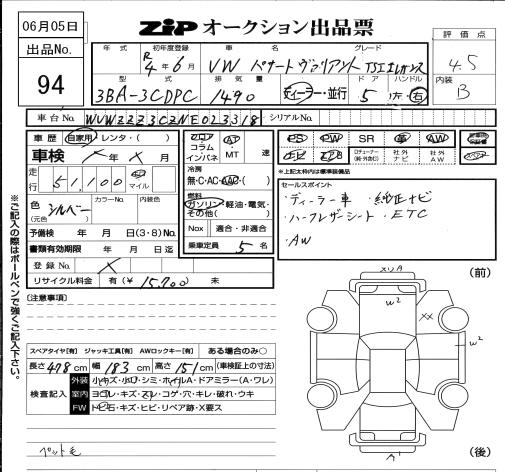 06月05日
ZIP オークション出品票
出品No.
94
評価点
4.5
内装
B
年式 初年度登録 車名 グレード
R4年6月 VW パサートヴァリアント TSIエレガンス
型式 排気量 ドア ハンドル
3BA-3CDPC 1490 ディーラー・並行 5 左・右
車台No. WVWZZZ3CZNE023318 シリアルNo.
車歴 自家用・レンタ・( )
車検 年 月
走行 51,100 km マイル
色(元色) シルバー カラーNo. 内装色
予備検 年 月 日(3・8)No.
書類有効期限 年 月 日迄
登録No.
リサイクル料金 有(¥ 15,700 ) 未
フロア コラム インパネ AT MT 速
冷房
無・C・AC・AAC・( )
燃料
ガソリン・軽油・電気・その他( )
Nox 適合・非適合
乗車定員 5 名
PS PW SR 革 AW
エアB
社外ナビ 社外AW
※上記太枠内は標準装備品
セールスポイント
・ディーラー車 ・純正ナビ
・ハーフレザーシート ・ETC
・AW
※ご記入の際はボールペンで強くご記入下さい。
[注意事項]
スペアタイヤ[有] ジャッキ工具[有] AWロックキー[有] ある場合のみ○
長さ 478 cm 幅 183 cm 高さ 151 cm (車検証上の寸法)
検査記入
外装 小キズ・小凹・シミ・ホイルA・ドアミラー(A・ワレ)
室内 ヨゴレ・キズ・スレ・コゲ・穴・キレ・破れ・ウキ
FW トビ石・キズ・ヒビ・リペア跡・X要ス
ペット毛
(前)
W2
XX
W2
(後)